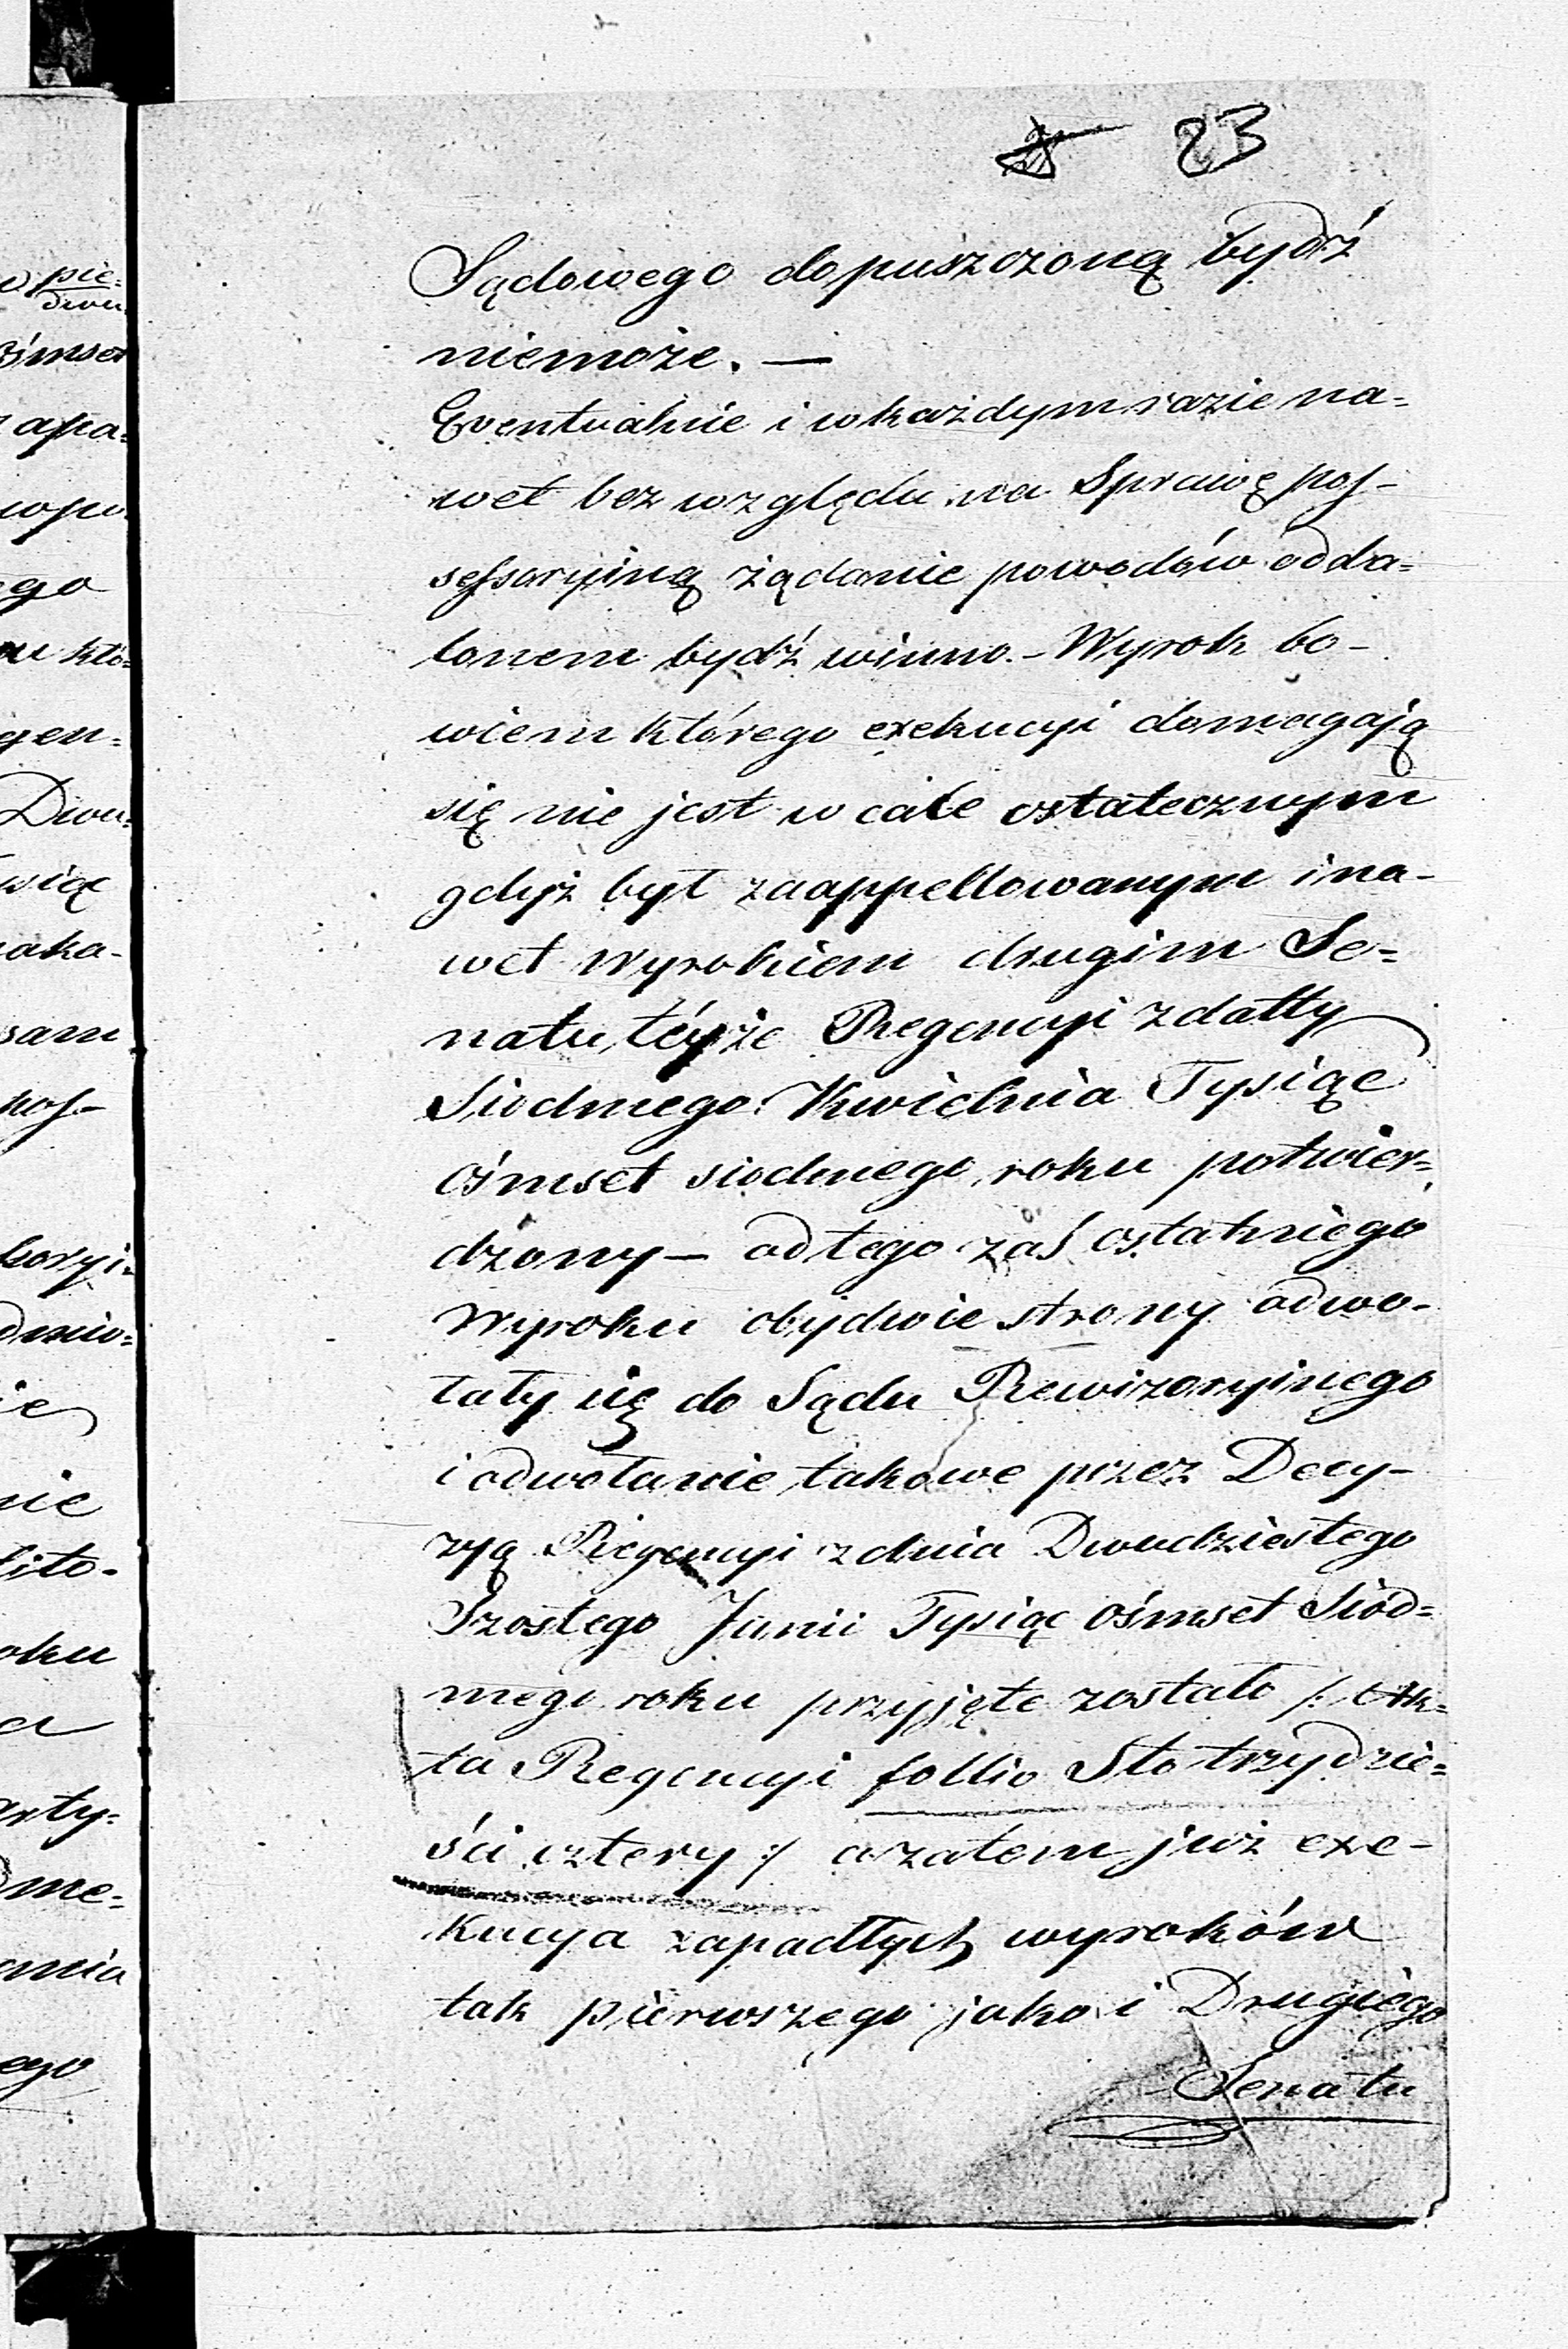 23
Sądowego dopuszczoną bydź
niemoże. —
Eventualnie i w każdym razie na=
wet bez względu na Sprawę pos-
sessoryiną żądanie powodów odda=
lonem bydź winno. - Wyrok bo-
wiem którego exekucyi domagają
się nie jest w cale ostatecznym
gdyż był zaappellowanym i na-
wet wyrokiem drugim Se=
natu, téyże Regencyi z datty
Siodmego Kwietnia Tysiąc
ośmset siodmego roku potwier=
dzony — od tego zaś ostatniego
Wyroku obydwie strony odwo-
łały się do Sądu Rewizoryinego
i odwołanie takowe przez Decy-
zyą Regencyi z dnia Dwudziestego
Szostego Junii Tysiąc ośmset Siod=
mego roku przyjęte zostało /: Ak=
ta Regencyi follio Sto trzydzie=
ści cztery :/ a zatem już exe-
kucya zapadłych wyroków
tak pierwszego jako i Drugiego
Senatu